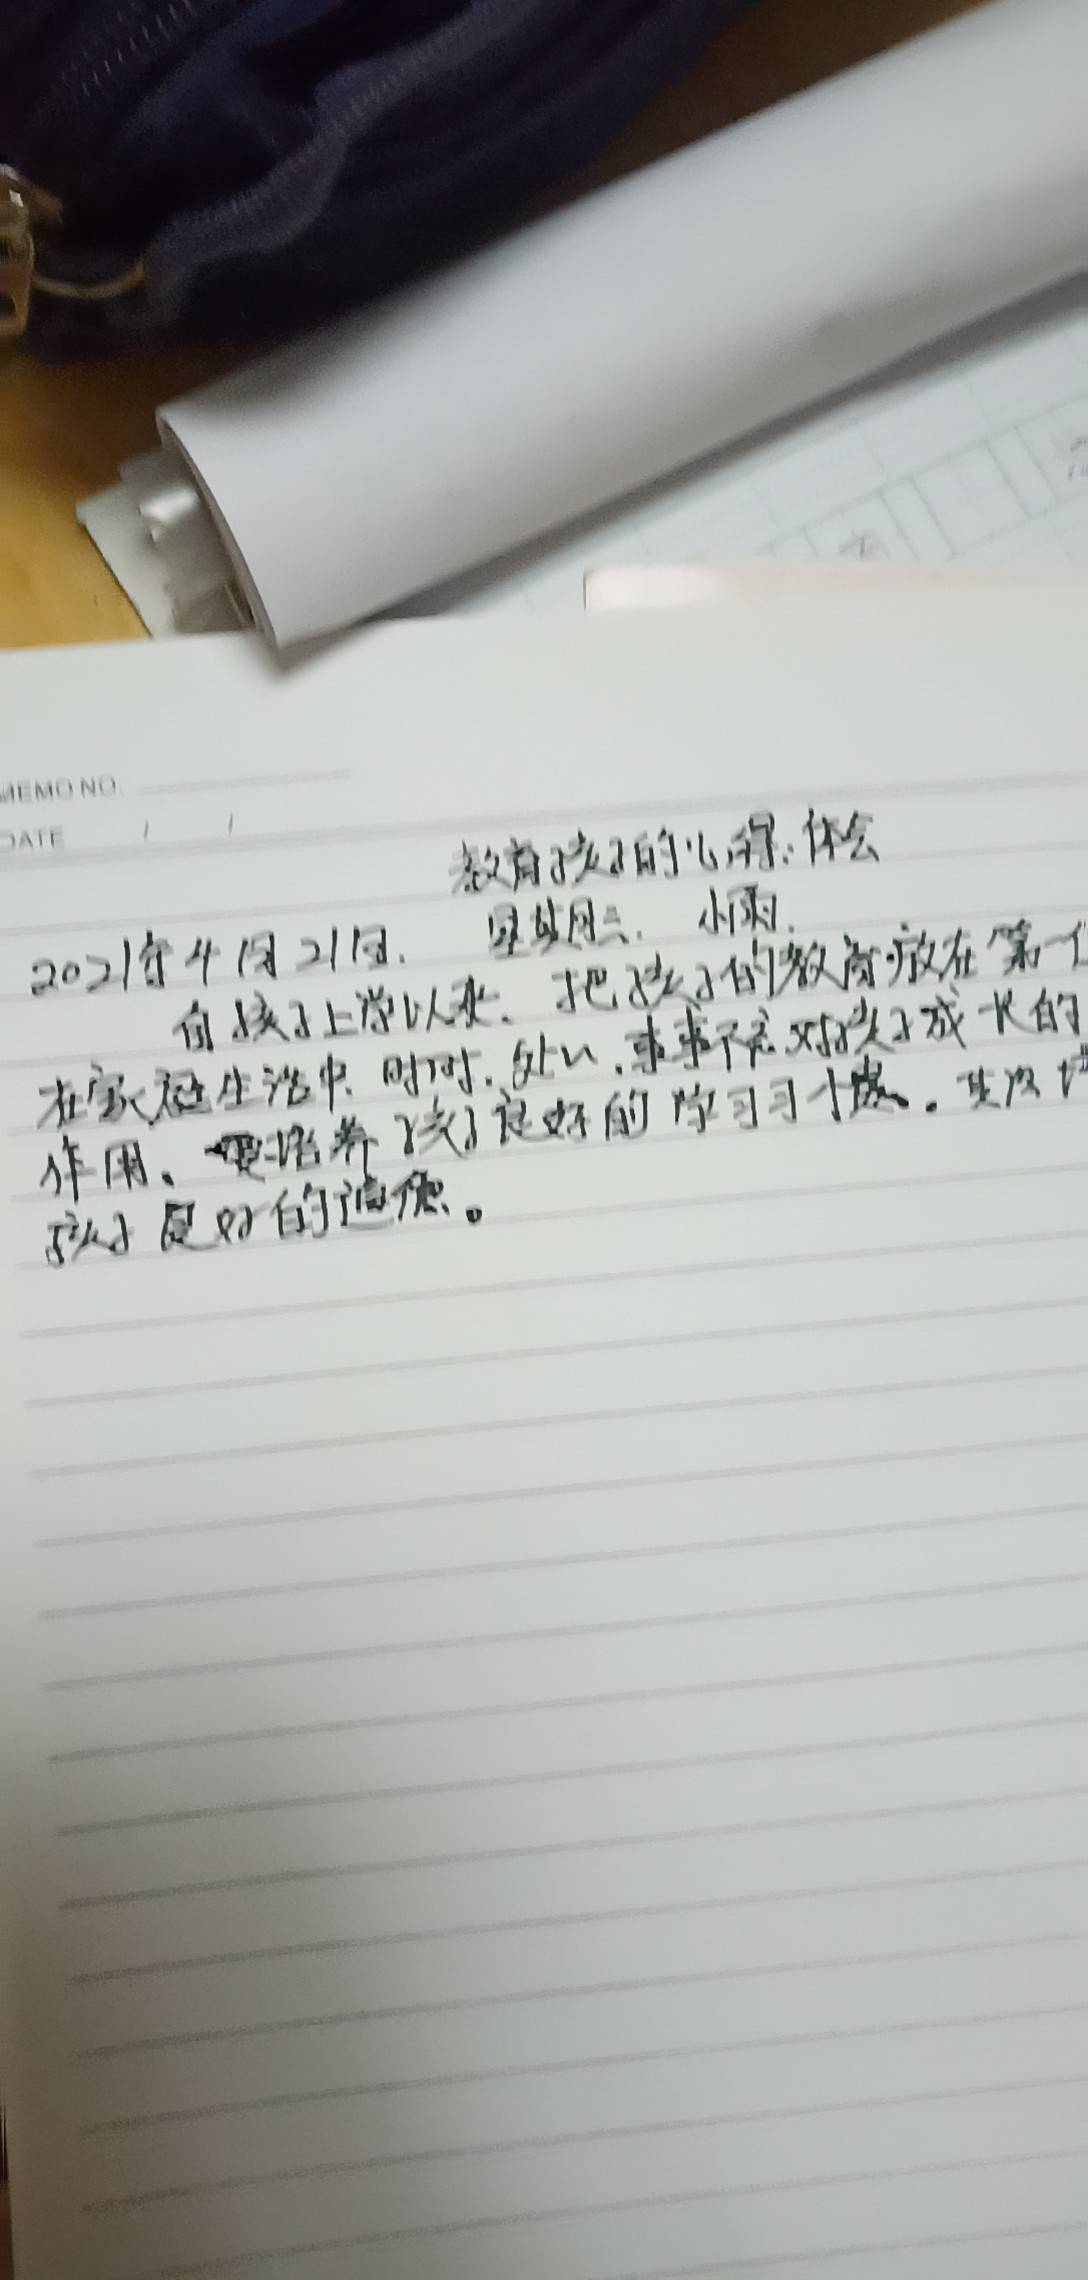 MEMO NO.
DATE / /
教育孩子的心得、体会
2021年4月21日. 星期三. 小雨.
自孩子上学以来、把孩子的教育放在第一
在家庭生活中、时时、处处、事事不忘对孩子成长的
作用、要培养孩子良好的学习习惯。其次
孩子良好的道德。